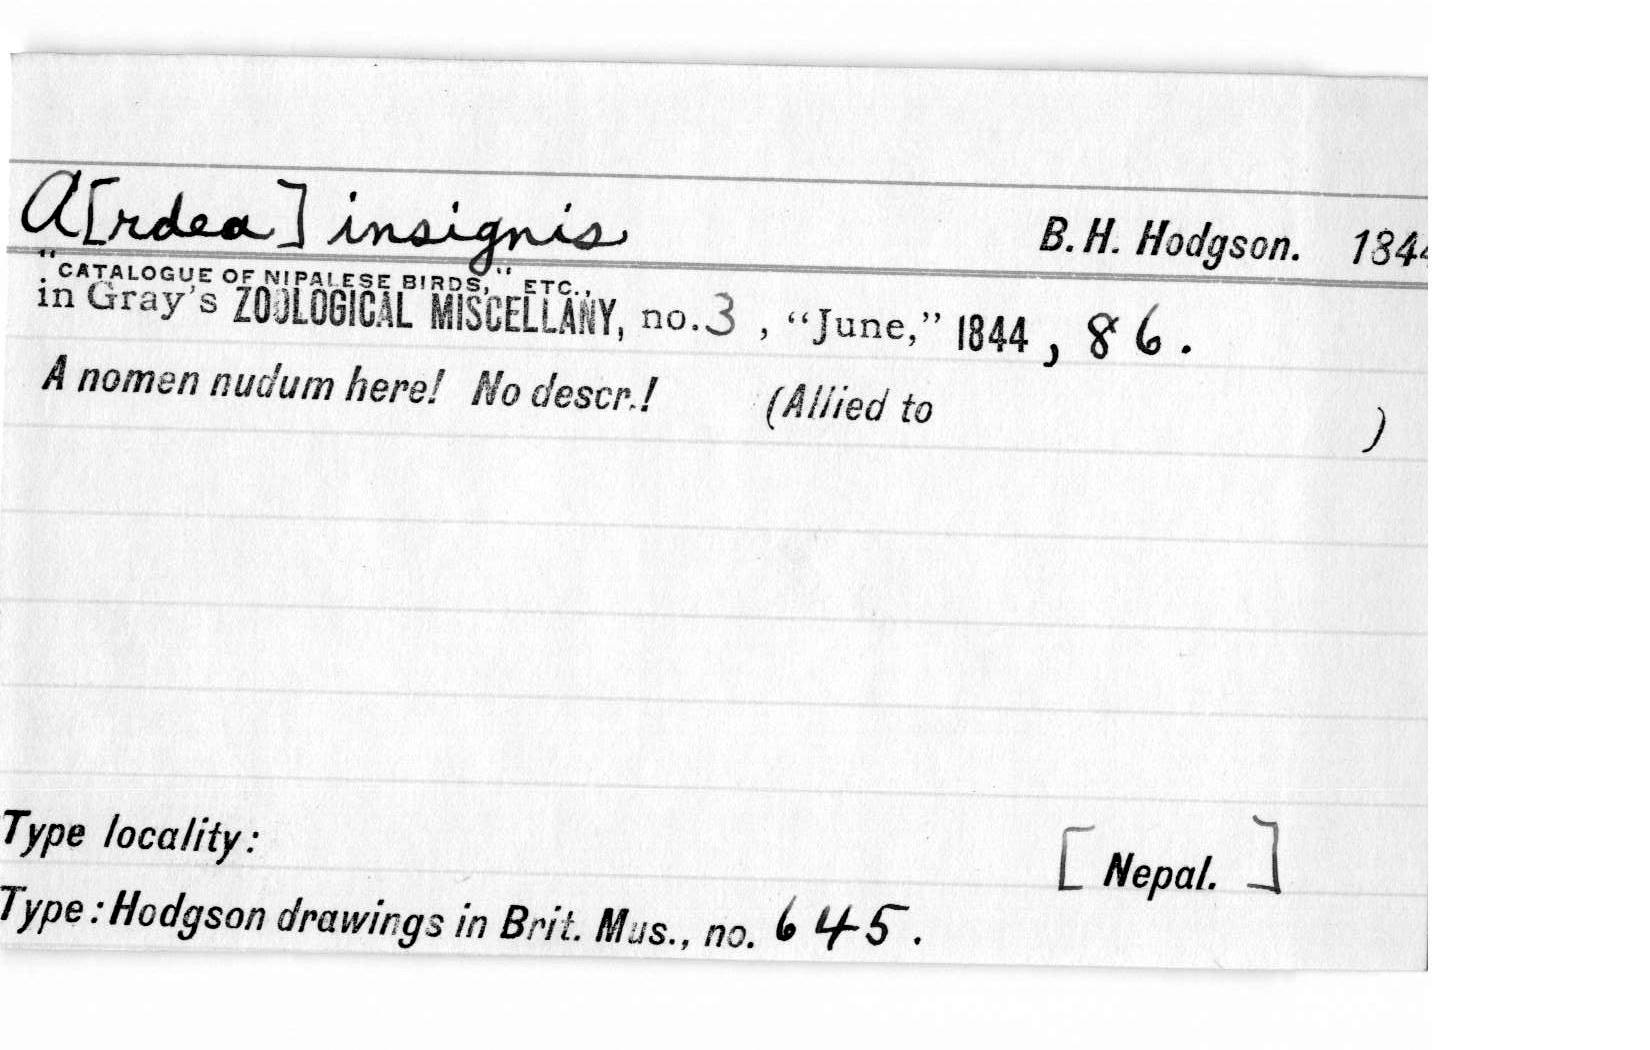 A[rdea] insignis B. H. Hodgson. 1844
"CATALOGUE OF NIPALESE BIRDS," ETC.,
in Gray's ZOOLOGICAL MISCELLANY, no. 3, "June," 1844, 86.
A nomen nudum here! No descr.! (Allied to )
Type locality: [Nepal.]
Type: Hodgson drawings in Brit. Mus., no. 645.